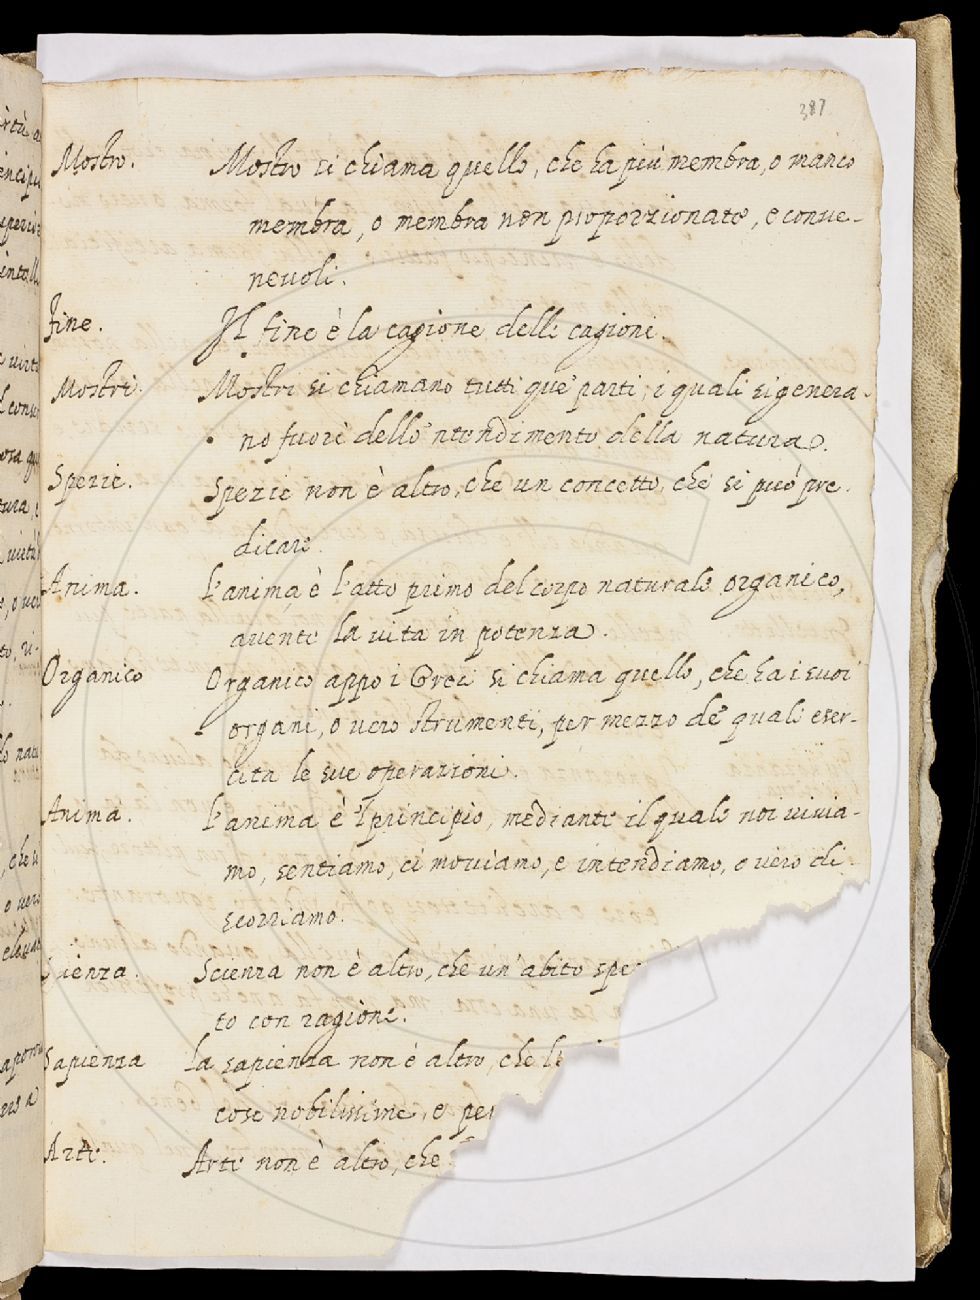 387
Mostro. Mostro si chiama quello, che ha più membra, o manco
membra, o membra non proporzionate, e conue-
neuoli.
fine. Il fine è la cagione delle cagioni.
Mostri. Mostri si chiamano tutti que' parti, i quali si genera-
no fuori dello 'ntendimento della natura.
Spezie. Spezie non è altro, che un concetto, che si può pre-
dicare.
Anima. L'anima è l'atto primo del corpo naturale organico,
auente la uita in potenza.
Organico Organico appo i Greci si chiama quello, che ha i suoi
organi, o uero strumenti, per mezzo de' quali eser-
cita le sue operazioni.
Anima. L'anima è 'l principio, mediante il quale noi uiuia-
mo, sentiamo, ci mouiamo, e intendiamo, o uero di-
scorriamo.
Scienza. Scienza non è altro, che un'abito spe
to con ragione.
Sapienza La sapienza non è altro, che
cose nobilissime, e per
Arte. Arte non è altro, che